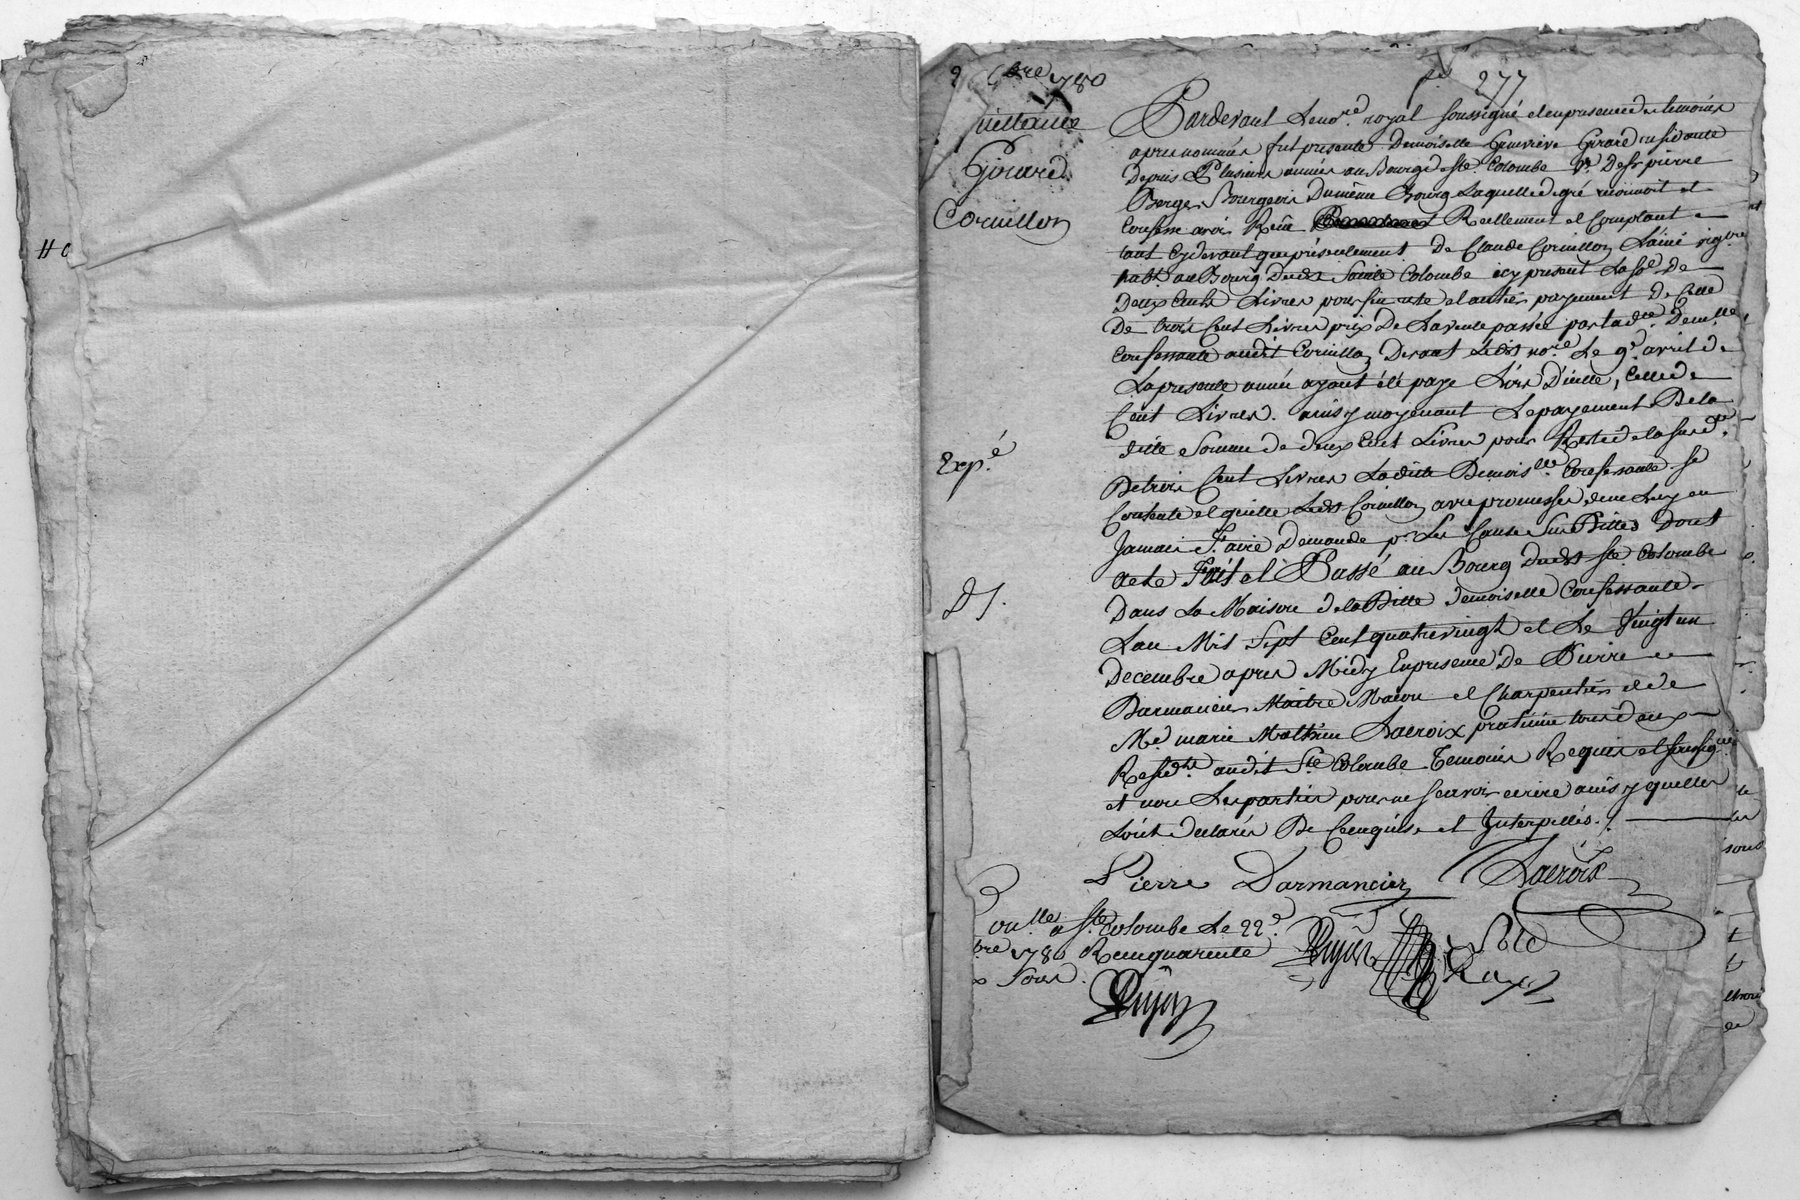 H C
9 bre 1780
277
uittance
Girard
Coruillon
Expé
Pardevant Le nore. royal soussigné et en presence des temoins
apres nommés fut presente Demoiselle Genevieve Girard residante
Depuis Plusieurs années au Bourg de ste. Colombe ve. De sr. pierre
Berger Bourgeois Du même Bourg Laquelle de gré reconnoit et
Confesse avoir Reçu Reellement et Comptant
tant Cy devant que présentement De Claude Coruillon Lainé vigron
habt. au Bourg Dudt Sainte Colombe icy present La se. De
Deux Cents Livres pour fin reste et entier payement De Celle
De trois Cent Livres prix De La vente passée par ladte. Demlle.
Confessante audit Coruillon Devant Ledt nore. Le 9e. avril de
La presente année ayant été payé Lors D'icelle, Celle de
Cent Livres. ainsy moyenant Le payement De la
ditte Somme de deux Cent Livres pour Reste de la susde.
De trois Cent Livres Laditte Demoislle. Confessante se
Contente et quitte Ledt Coruillon avec promesses de ne Luy en
Jamais Faire Demande pr. Les Causes Sus Dittes Dont
acte Fait et Passé au Bourg Dudt Ste. Colombe
Dans La Maison de la Ditte demoiselle Confessante
Lan Mil Sept Cent quatre vingt et Le Vingt un
Decembre apres Midy En presence De Pierre
Darmancier Maitre Macon et Charpentier et de
Me. marie Mathieu Lacroix praticien tous deux
Residts. audit Ste Colombe Temoins Requis et soussignés
et non Les parties pour ne scavoir ecrire ainsy quelles
L'ont declarés De Ce enquises et Interpellés. /.
Pierre Darmancier Lacroix
Dujon
on.lle a Ste. Colombe Le 22e.
bre 1780 Recu quarente
Sous.
Dujon